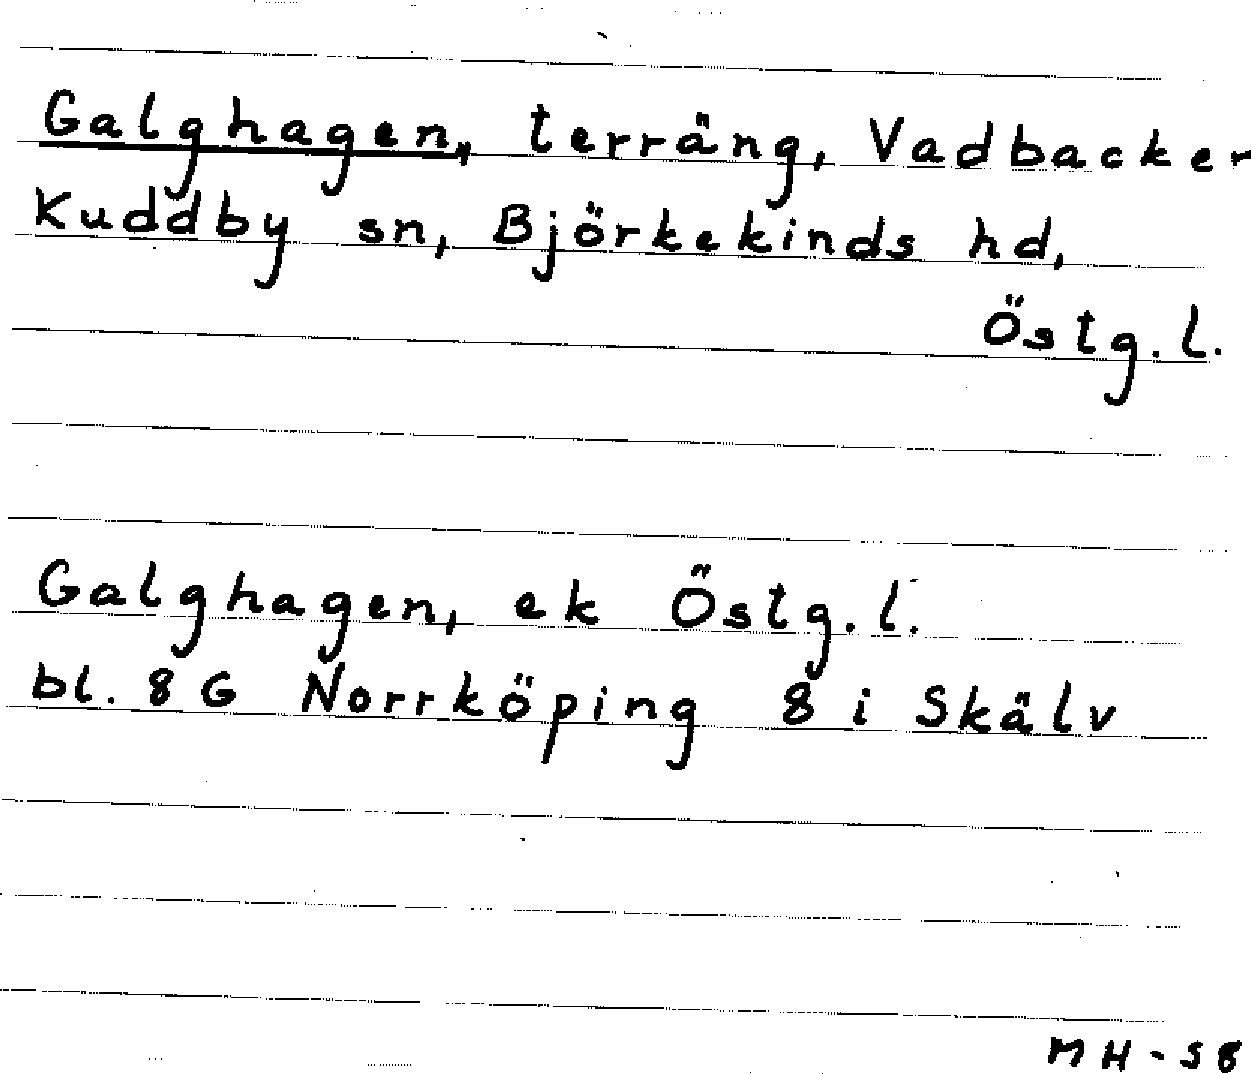 Galghagen, terräng, Vadbacken
Kuddby sn, Björkekinds hd,
Östg. l.
Galghagen, ek Östg. l.
bl. 8 G Norrköping 8 i Skälv
MH-SB